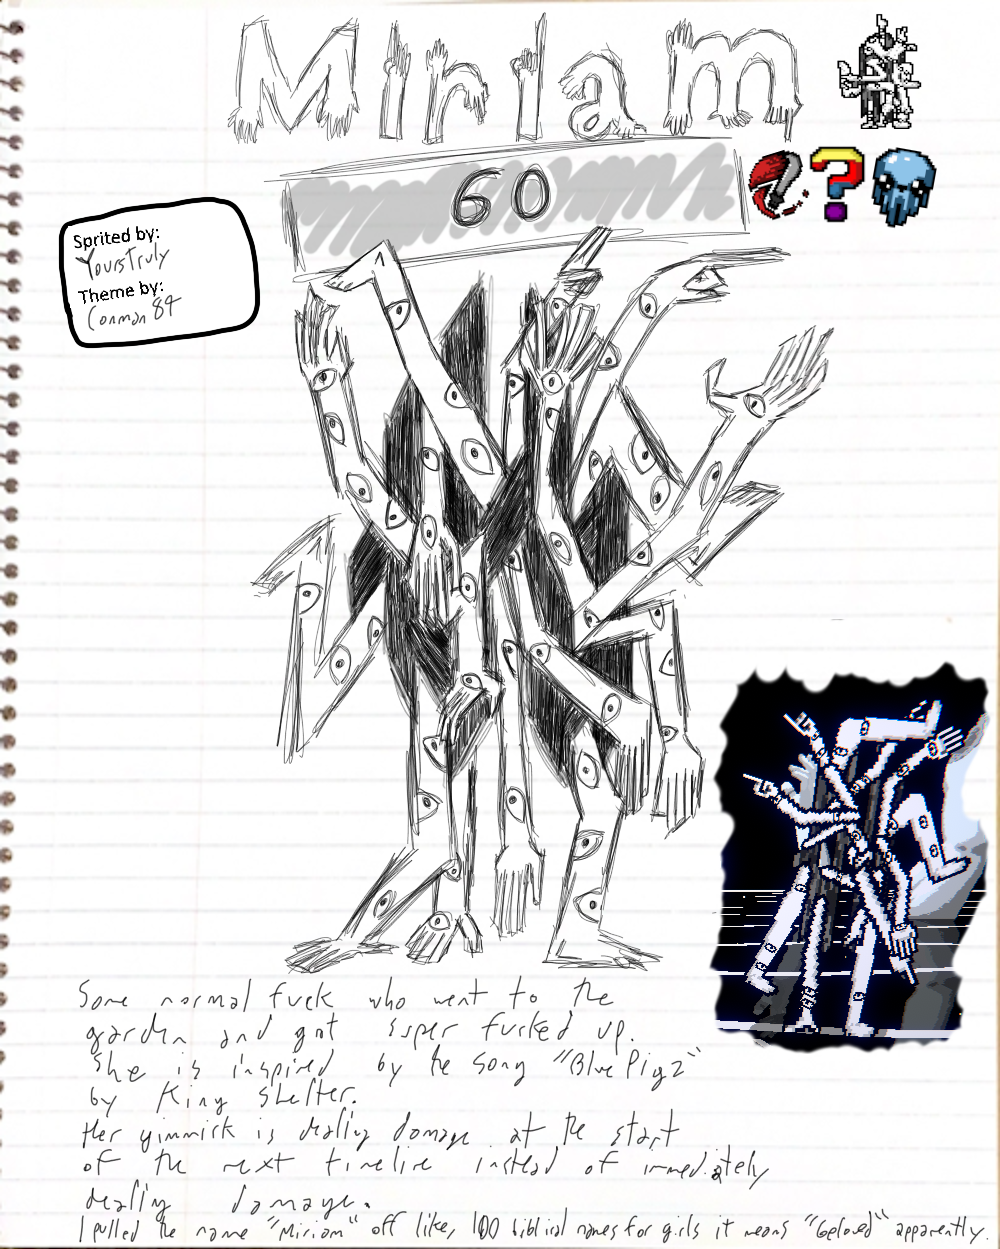 Miriam
60
Sprited by:
YoursTruly
Theme by:
Conman84
Some normal fuck who went to the
garden and got super fucked up.
She is inspired by the song "Blue Pigz"
by King Shelter.
Her gimmick is dealing damage at the start
of the next timeline instead of immediately
dealing damage.
I pulled the name "Miriam" off like, 100 biblical names for girls it means "Beloved" apparently.